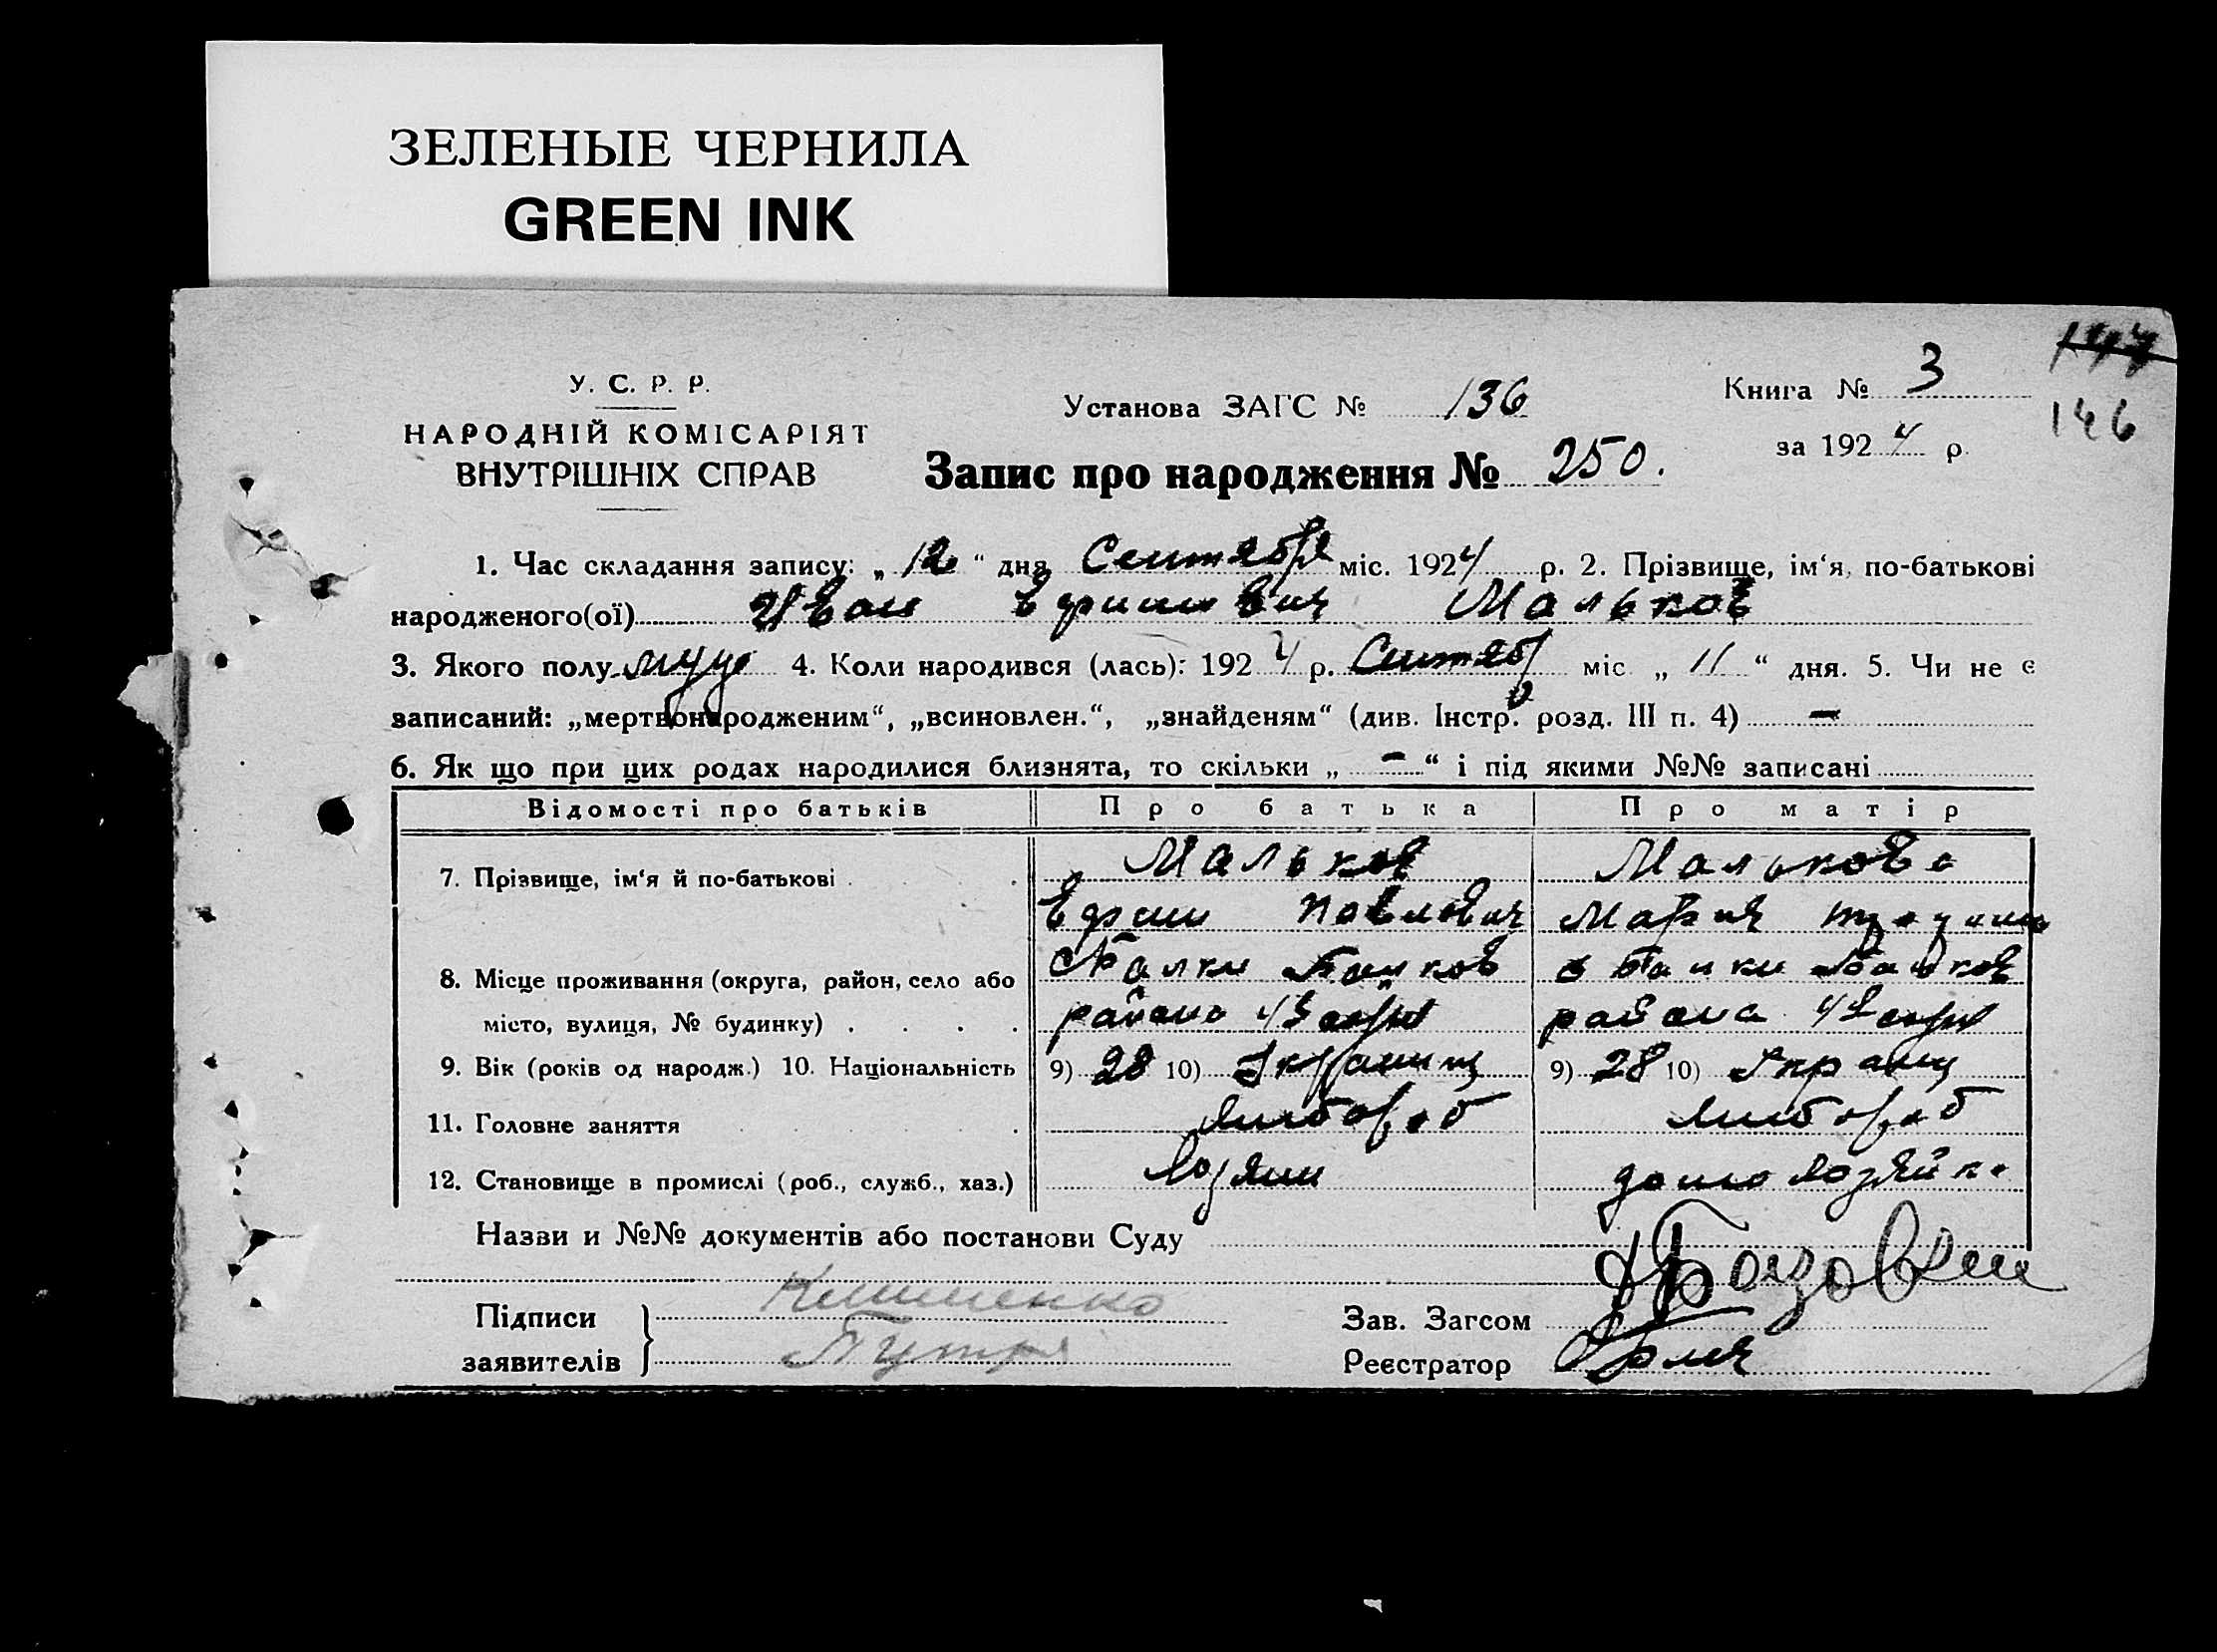 ЗЕЛЕНЫЕ ЧЕРНИЛА
GREEN INK
147
146
У. С. Р. Р.
НАРОДНІЙ КОМІСАРІЯТ
ВНУТРІШНІХ СПРАВ
Установа ЗАГС № 136
Книга № 3
за 1924 р.
Запис про народження № 250.
1. Час складання запису: „12“ дня Сентября міс. 1924 р. 2. Прізвище, ім‘я, по-батькові
народженого(ої) Иван Ефимович Мальков
3. Якого полу муж 4. Коли народився (лась): 1924 р. Сентяб міс. „11“ дня. 5. Чи не є
записаний: „мертвонародженим“, „всиновлен.“, „знайденям“ (див. Інстр. розд. III п. 4) —
6. Як що при цих родах народилися близнята, то скільки „—“ і під якими №№ записані
Відомості про батьків Про батька Про матір
7. Прізвище, ім‘я й по-батькові Мальков Малькова
Ефим Павлович Мария
8. Місце проживання (округа, район, село або
місто, вулиця, № будинку) района района
9. Вік (років од народж.) 10. Національність 9) 28 10) 9) 28 10)
11. Головне заняття хлебороб хлебороб
12. Становище в промислі (роб., служб., хаз.) Хозяин домохозяйка
Назви и №№ документів або постанови Суду
Підписи Клименко Зав. Загсом
заявителів Реєстратор